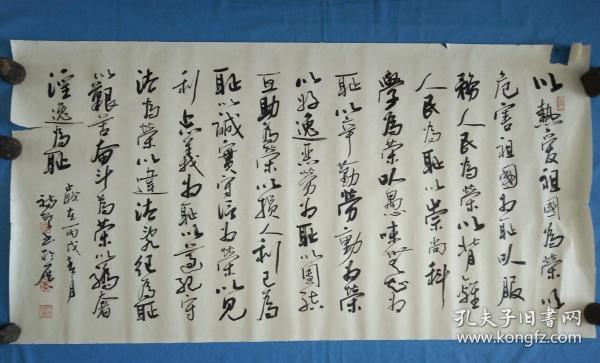 以熱愛祖國為榮以
危害祖國为恥以服
務人民為榮以背離
人民為恥以崇尚科
學為榮以愚昧無知为
恥以辛勤勞動为榮
以好逸惡勞为恥以團結
互助為榮以損人利己為
恥以誠實守信为榮以見
利忘義为恥以遵紀守
法為榮以違法亂紀為恥
以艱苦奮斗為榮以驕奢
淫逸為恥
歲在丙戌春月
孔夫子旧书网
www.kongfz.com